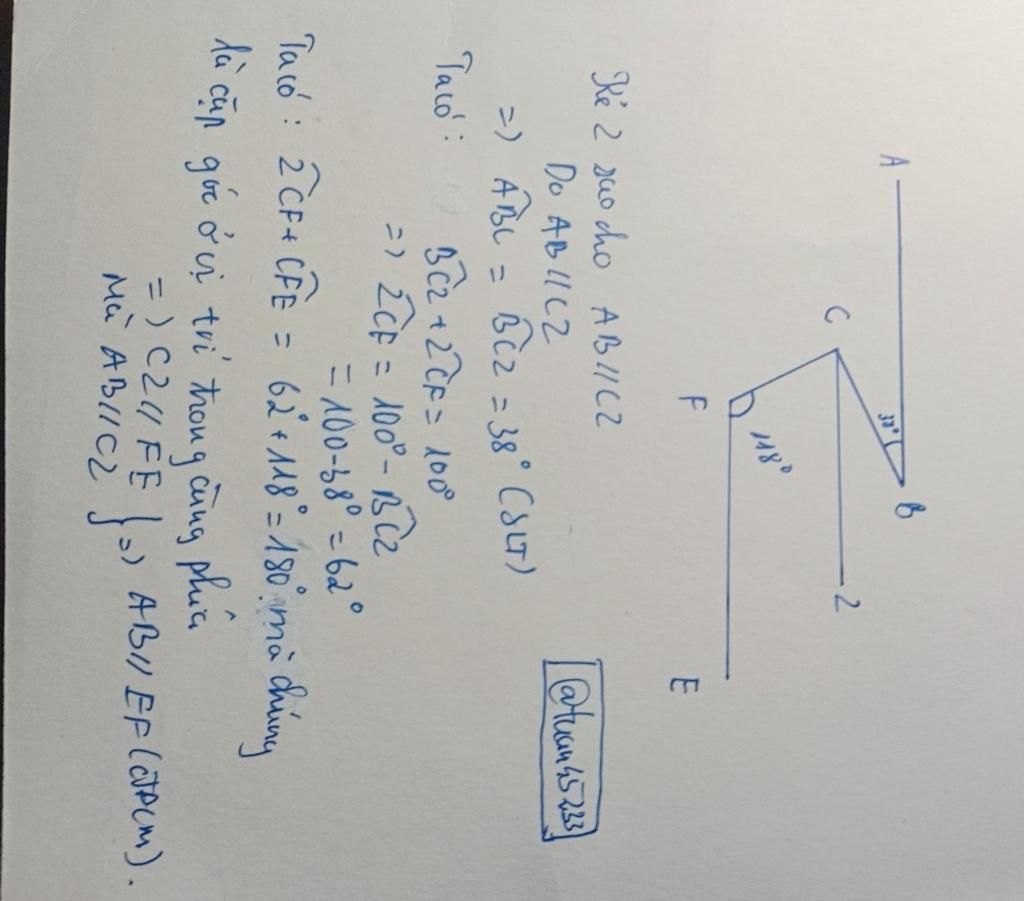 A
B
38°
C
2
118°
F
E
Kẻ 2 sao cho AB//C2
Do AB//C2
=) ABC = BC2 = 38° (SLT)
Ta có: BC2 + 2CF = 100°
=) 2CF = 100° - BC2
= 100 - 38° = 62°
Ta có: 2CF + CFE = 62° + 118° = 180° mà chúng
là cặp góc ở vị trí trong cùng phía
=) C2//FE
Mà AB//C2 } =) AB//EF (đpcm).
@tuan45233